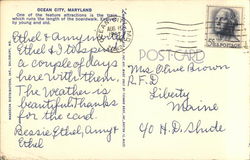 OCEAN CITY, MARYLAND
One of the feature attractions is the tram
which runs the length of the boardwalk. Enjoyed
by young and old.
Ethel & Amy invited
Ethel & I to spend
a couple of days
here with them.
The Weather is
beautiful. Thanks
for the card.
Bessie, Ethel, Amy &
Ethel
POST CARD
Mrs. Olive Brown
R.F.D
Liberty
Maine
c/o H.D. Shude